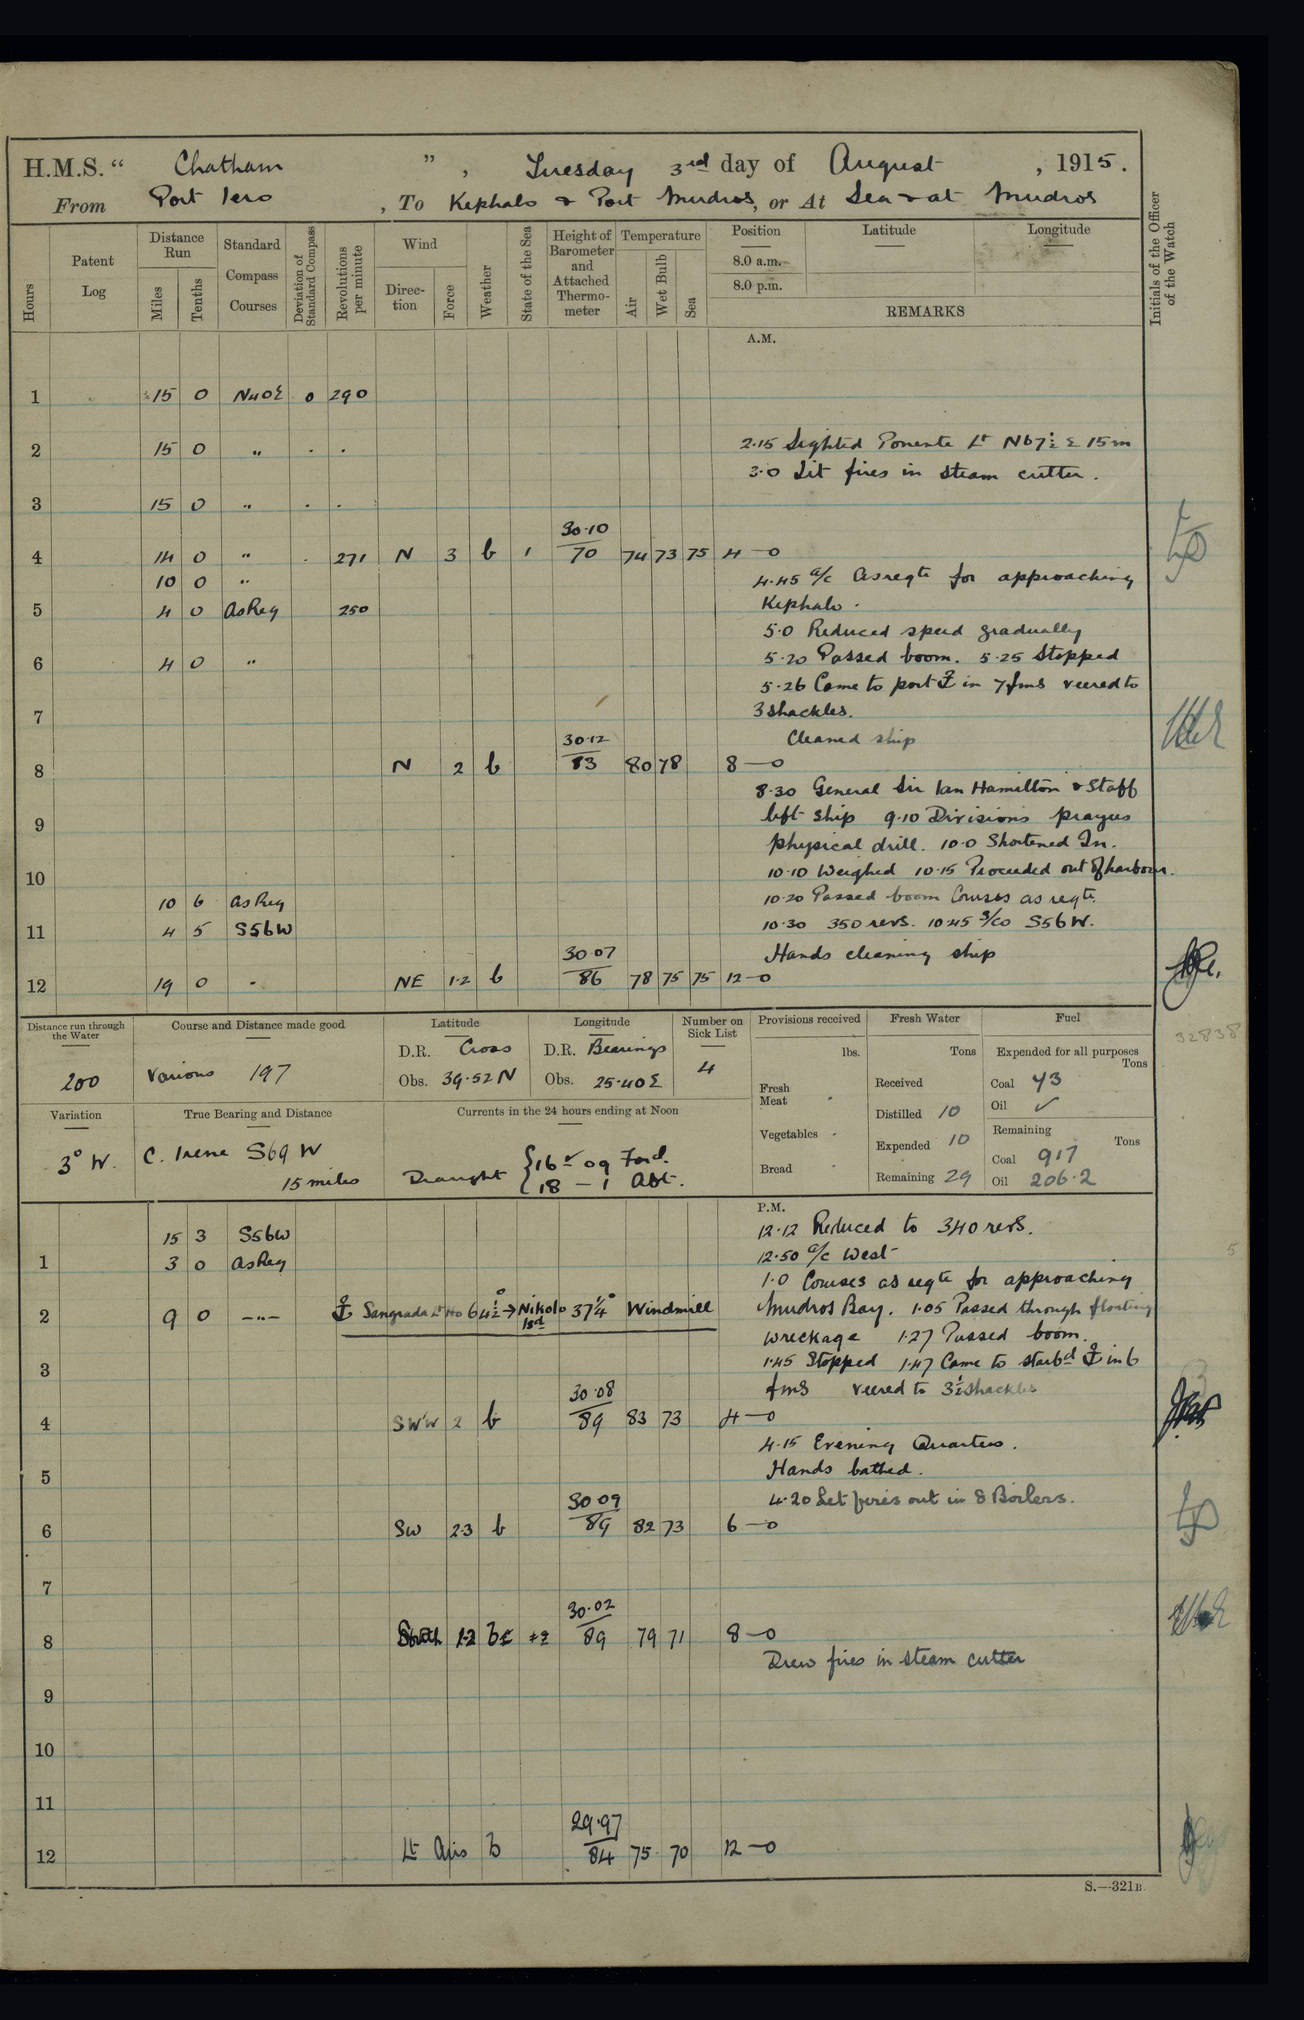 H.M.S. “ Chatham ”, Tuesday 3rd day of August, 1915.
From Port Iero, To Kephalo & Port Mudros, or At Sea & at Mudros
Hours
Patent Log
Distance Run
Miles
Tenths
Standard Compass Courses
Deviation of Standard Compass
Revolutions per minute
Wind
Direction
Force
Weather
State of the Sea
Height of Barometer and Attached Thermometer
Temperature
Air
Wet Bulb
Sea
Position
8.0 a.m.
8.0 p.m.
Latitude
Longitude
REMARKS
Initials of the Officer of the Watch
A.M.
1 15 0 N40E 0 290
2 15 0 " . .
2.15 Sighted Ponente Lt N67½E 15m
3.0 Lit fires in steam cutter.
3 15 0 " . .
30.10
4 14 0 " . 271 N 3 b 1 70 74 73 75 4—0
10 0 "
4.45 a/c as reqte for approaching
5 4 0 As Req 250
Kephalo.
5.0 Reduced speed gradually
6 4 0 "
5.20 Passed boom. 5.25 Stopped
5.26 Came to port ⚓ in 7 fms veered to
7
3 shackles.
Cleaned ship
30.12
8 N 2 b 83 80 78 8—0
8.30 General Sir Ian Hamilton & Staff
9
left ship 9.10 Divisions prayers
physical drill. 10.0 Shortened In.
10
10.10 Weighed 10.15 Proceeded out of harbour.
10 6 as Req
10.20 Passed boom Courses as reqte.
11 4 5 S56W
10.30 350 revs. 10.45 S/Co S56W.
Hands cleaning ship
30.07
12 19 0 . NE 1.2 b 86 78 75 75 12—0
Distance run through the Water
200
Course and Distance made good
Various 197
Latitude
D.R. Cross
Obs. 39.52N
Longitude
D.R. Bearings
Obs. 25.40E
Number on Sick List
4
Provisions received
lbs.
Fresh Meat
Vegetables
Bread
Fresh Water
Tons
Received
Distilled 10
Expended 10
Remaining 29
Fuel
Expended for all purposes
Tons
Coal 43
Oil ✓
Remaining
Tons
Coal 917
Oil 206.2
32838
Variation
3° W.
True Bearing and Distance
C. Irene S69W
15 miles
Currents in the 24 hours ending at Noon
Draught { 16 – 09 Ford.
18 – 1 Aft.
P.M.
15 3 S56W
12.12 Reduced to 340 revs.
1 3 0 as Req
12.50 a/c West
1.0 Courses as reqte for approaching
2 9 0 –"– ⚓ Sangrada Lt Ho 64½° → Nikolo Isd 37¼° Windmill
Mudros Bay. 1.05 Passed through floating
wreckage 1.27 Passed boom.
3
1.45 Stopped 1.47 Came to starbd ⚓ in 6
fms veered to 3½ shackles
30.08
4 SW'W 2 b 89 83 73 4—0
4.15 Evening Quarters.
5
Hands bathed.
4.20 Let fires out in 8 Boilers.
30.09
6 SW 2.3 b 89 82 73 6—0
7
30.02
8 South 1.2 89 79 71 8—0
Drew fires in steam cutter
9
10
11
29.97
12 Lt Airs b 84 75 70 12—0
S.—321B.